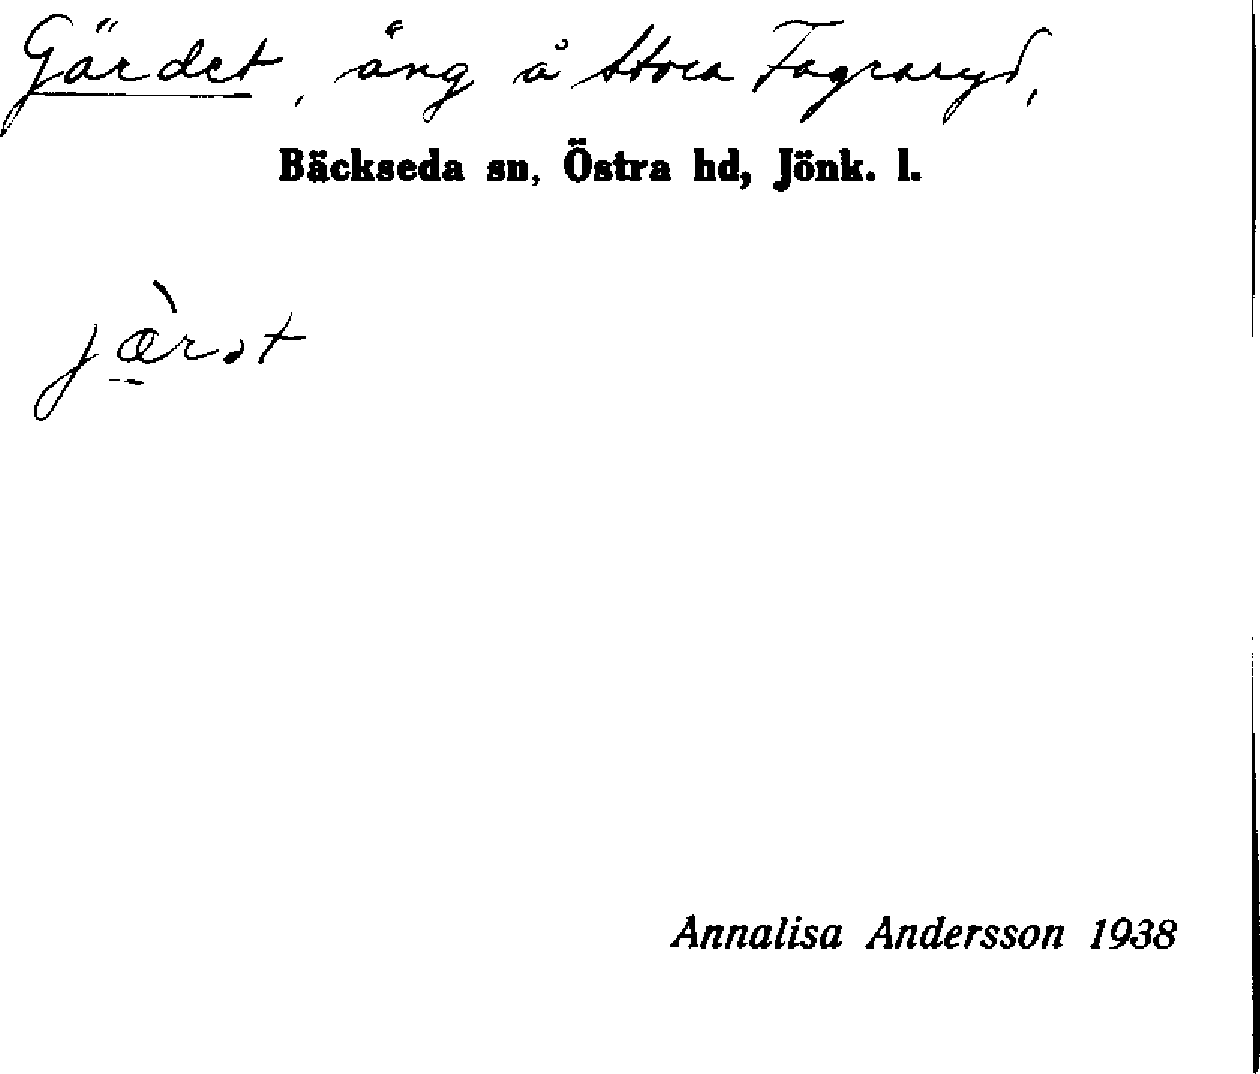 Gärdet, äng å Stora Fagraryd,
Bäckseda sn, Östra hd, Jönk. l.
jæ̀rət
Annalisa Andersson 1938